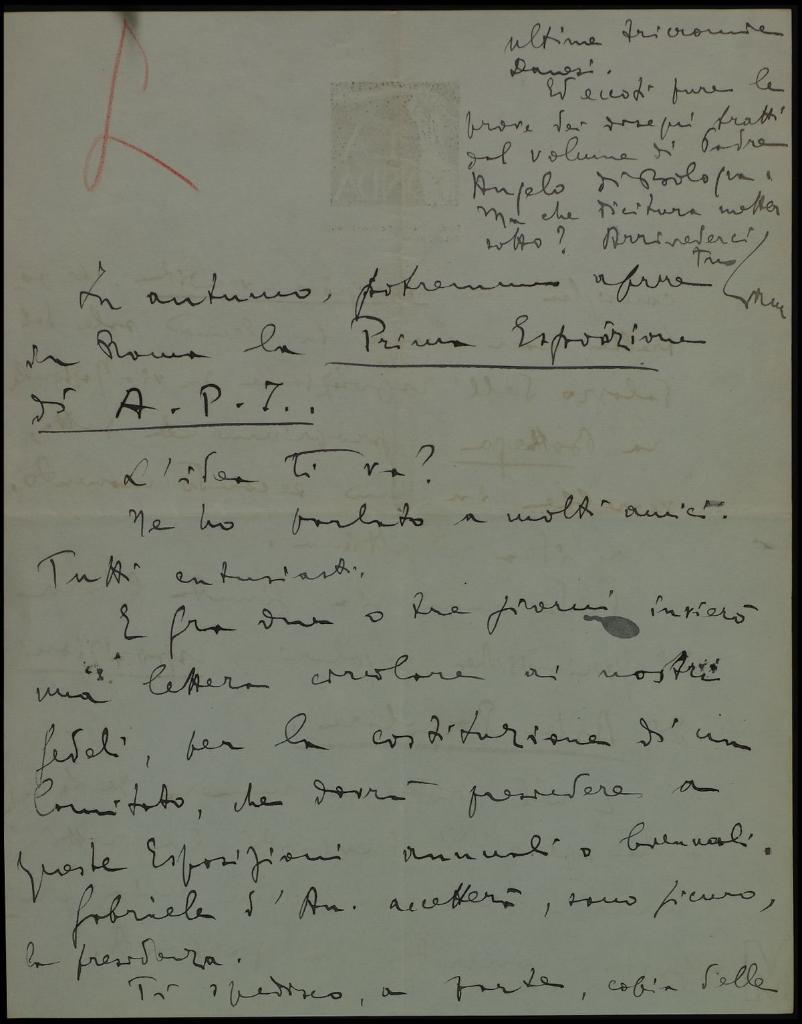 In autunno, potremmo aprire
in Roma la Prima Esposizione
di A.P.I..
L'idea ti va?
Ne ho parlato a molti amici.
Tutti entusiasti.
E fra due o tre giorni invierò
una lettera circolare ai nostri
fedeli, per la costituzione di un
Comitato, che dovrà presiedere a
queste Esposizioni annuali o biennali.
Gabriele d'An. accetterà, sono sicuro,
la presidenza.
Ti spedisco, a parte, copia delle
ultime tricromie
Danesi.
Ed eccoti pure le
prove dei disegni tratti
dal volume di Padre
Angelo di Bologna.
Ma che dicitura metter
sotto? Arrivederci
Tuo